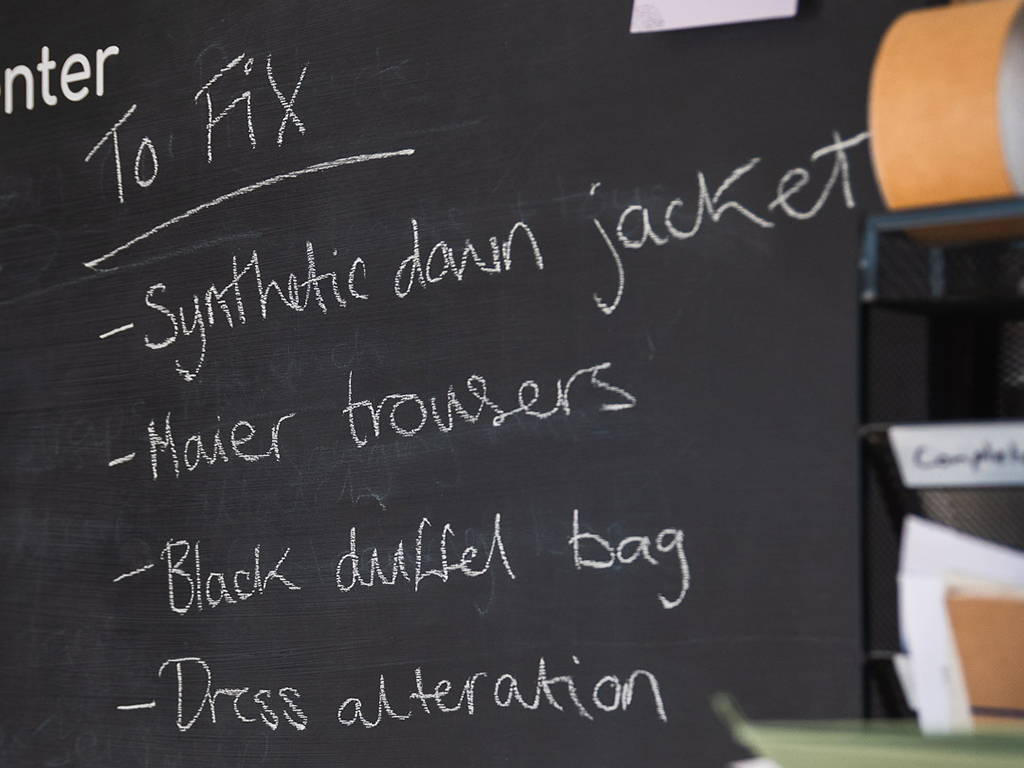 enter
To Fix
- Synthetic down jacket
- Maier trousers
- Black duffel bag
- Dress alteration